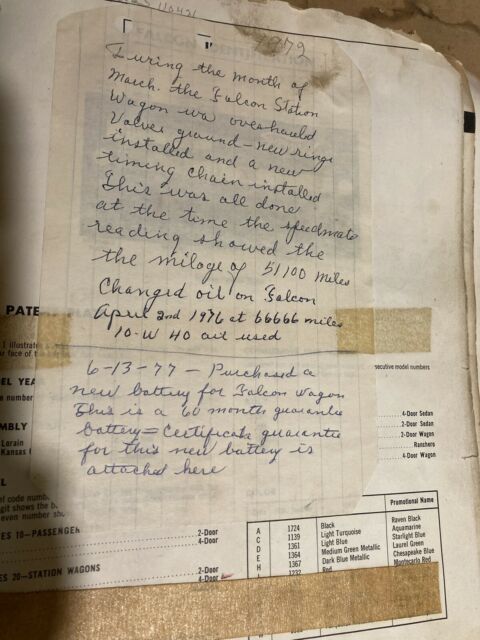 1972
During the month of
March. the Falcon Station
Wagon wa overhauled
Valves ground - new rings
installed and a new
timing chain installed
This was all done
at the time the speedmate
reading showed the
the miloge of 51100 miles
Changed oil on Falcon
April 2nd 1976 at 66666 miles
10-W 40 oil used
6-13-77 - Purchased a
new battery for Falcon Wagon
This is a 60 month guarantee
battery = Certificate guarantee
for this new battery is
attached here
PATE
1 illustrates
or face of t
secutive model numbers
EL YEA
e number
MBLY
Lorain
Kansas
4-Door Sedan
2-Door Sedan
2-Door Wagon
Ranchero
4-Door Wagon
EL
el code numb
git shows the b
even number sho
ES 10—PASSENGER
2-Door
4-Door
ES 20—STATION WAGONS
2-Door
4-Door
Promotional Name
A 1724 Black Raven Black
C 1139 Light Turquoise Aquamarine
D 1361 Light Blue Starlight Blue
E 1364 Medium Green Metallic Laurel Green
H 1367 Dark Blue Metallic Chesapeake Blue
1232 Red Montecarlo Red